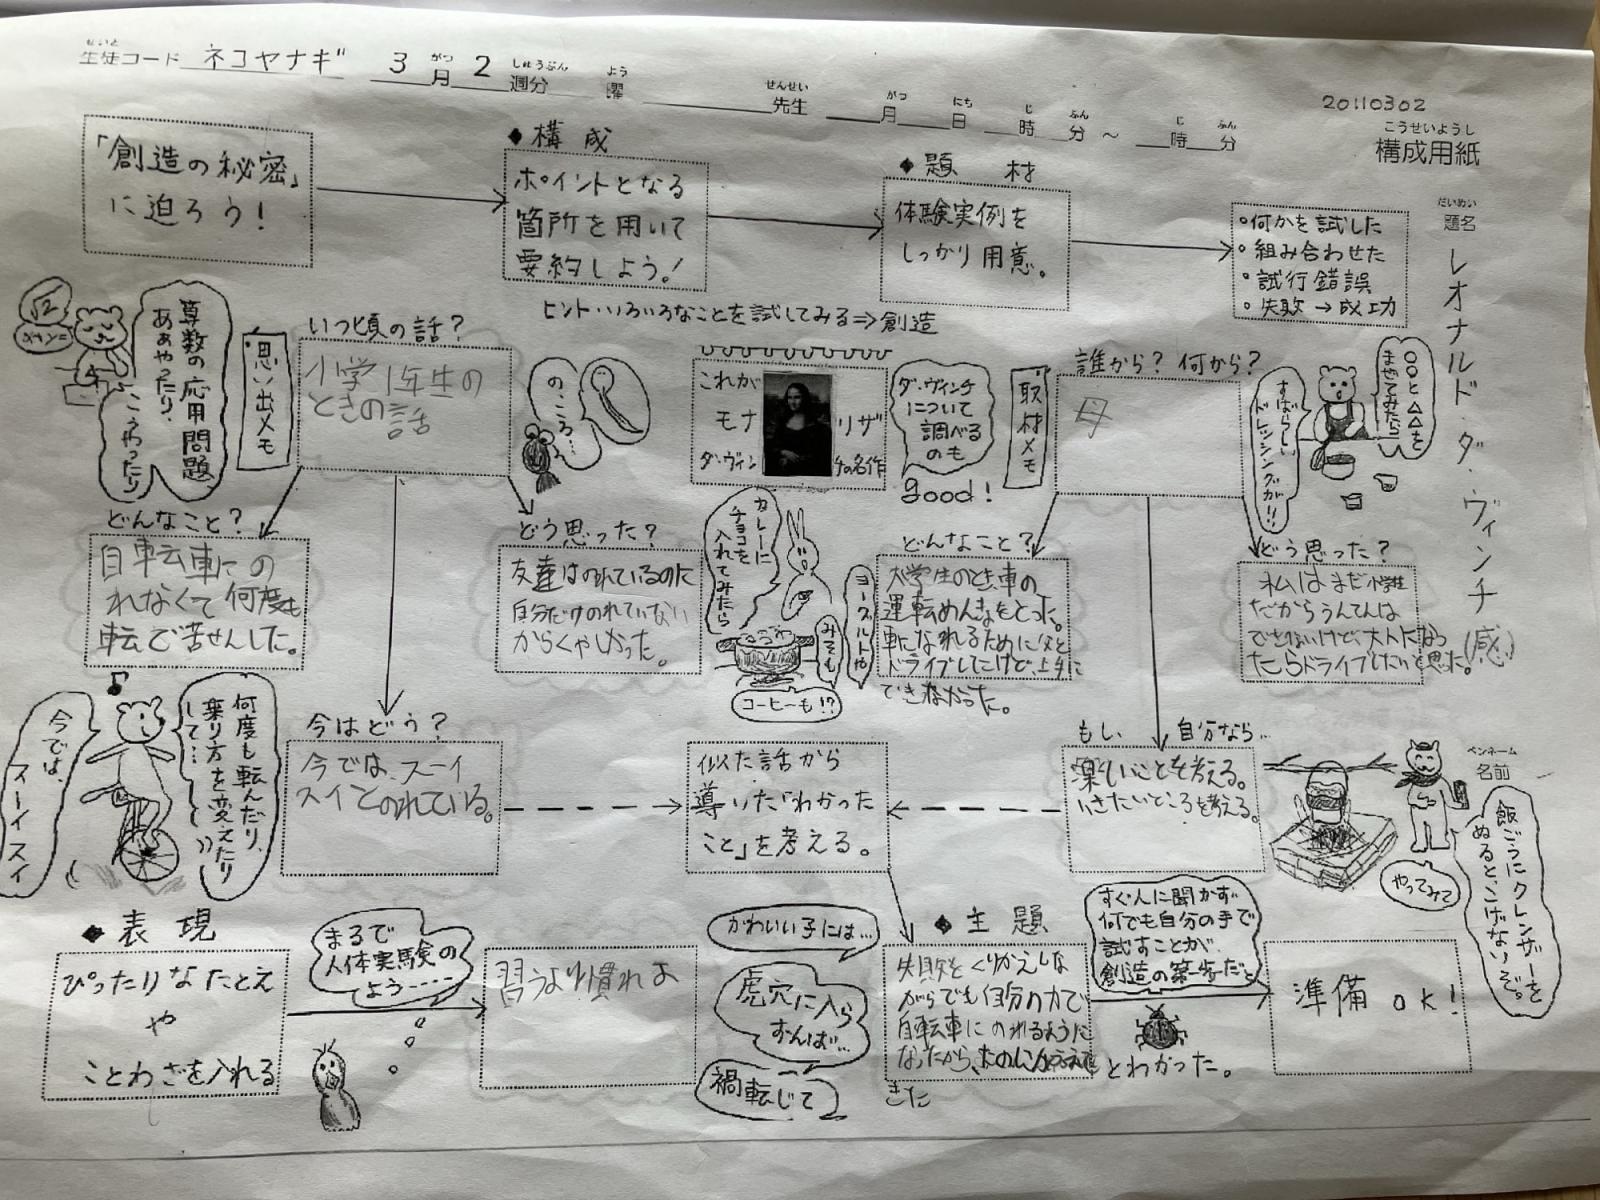 せいと
生徒コード ネコヤナギ 3月 2週分 曜 先生 月 日 時 分 ～ 時 分
がつ しゅうぶん よう せんせい がつ にち じ ふん じ ふん
20110302
こうせいようし
構成用紙
だいめい
題名
レオナルド・ダ・ヴィンチ(感)
ペンネーム
名前
「創造の秘密」
に迫ろう！
◆構成
ポイントとなる
箇所を用いて
要約しよう！
◆題材
体験実例を
しっかり用意。
・何かを試した
・組み合わせた
・試行錯誤
・失敗→成功
ヒント・いろいろなことを試してみる⇒創造
√2
算数の応用問題
ああやったり、
こうやったり
思い出メモ
いつ頃の話？
小学1年生の
ときの話
の、ころ…
これが
モナリザ
ダ・ヴィンチの名作
ダ・ヴィンチ
について
調べる
のも
good！
取材メモ
誰から？何から？
母
〇〇と△△を
まぜてみたら
すばらしい
ドレッシングが!!
どんなこと？
自転車にの
れなくて何度も
転んで苦せんした。
どう思った？
友達はのれているのに
自分だけのれていない
からくやしかった。
カレーに
チョコを
入れてみたら
ヨーグルトや
みそも
コーヒーも!?
どんなこと？
大学生のとき、車の
運転めんきょをとった。
車になれるために父と
ドライブしたけど、上手に
できなかった。
どう思った？
私はまだ小学生
だからうんてんは
できないけど、大人になっ
たらドライブしたいと思った。
♪
何度も転んだり、
乗り方を変えたり
して…
今では、
スーイスイ
今はどう？
今では、スーイ
スイとのれている。
似た話から
導いた「わかった
こと」を考える。
もし、自分なら…
楽しいことを考える。
いきたいところを考える。
飯ごうにクレンザーを
ぬるとこげないぞ。
やってみて
◆表現
ぴったりなたとえ
や
ことわざを入れる
まるで
人体実験の
よう----
習うより慣れよ
かわいい子には…
虎穴に入ら
ずんば…
禍転じて
◆主題
失敗をくりかえしな
がらでも自分の力で
自転車にのれるように
なったから、
きた
すぐ人に聞かず
何でも自分の手で
試すことが、
創造の第一歩だと
とわかった。
準備ok！